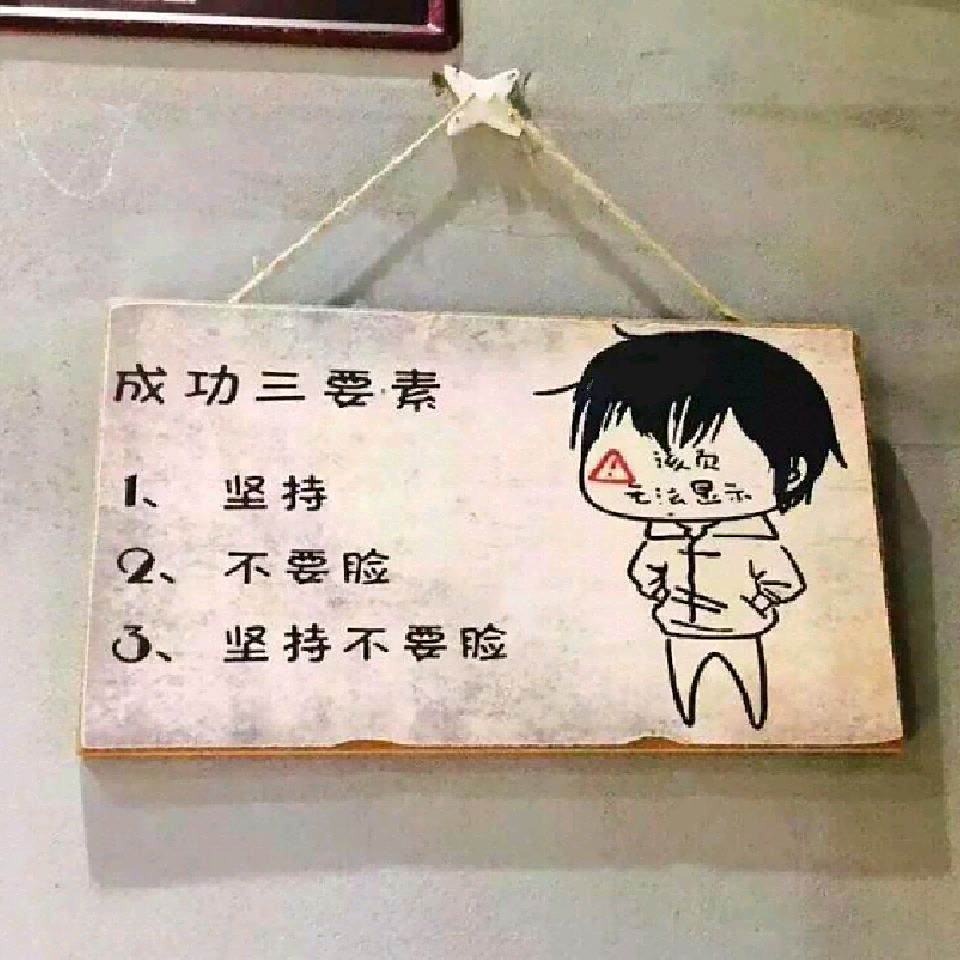 成功三要素
1、 坚持
2、 不要脸
3、 坚持不要脸
该页
无法显示